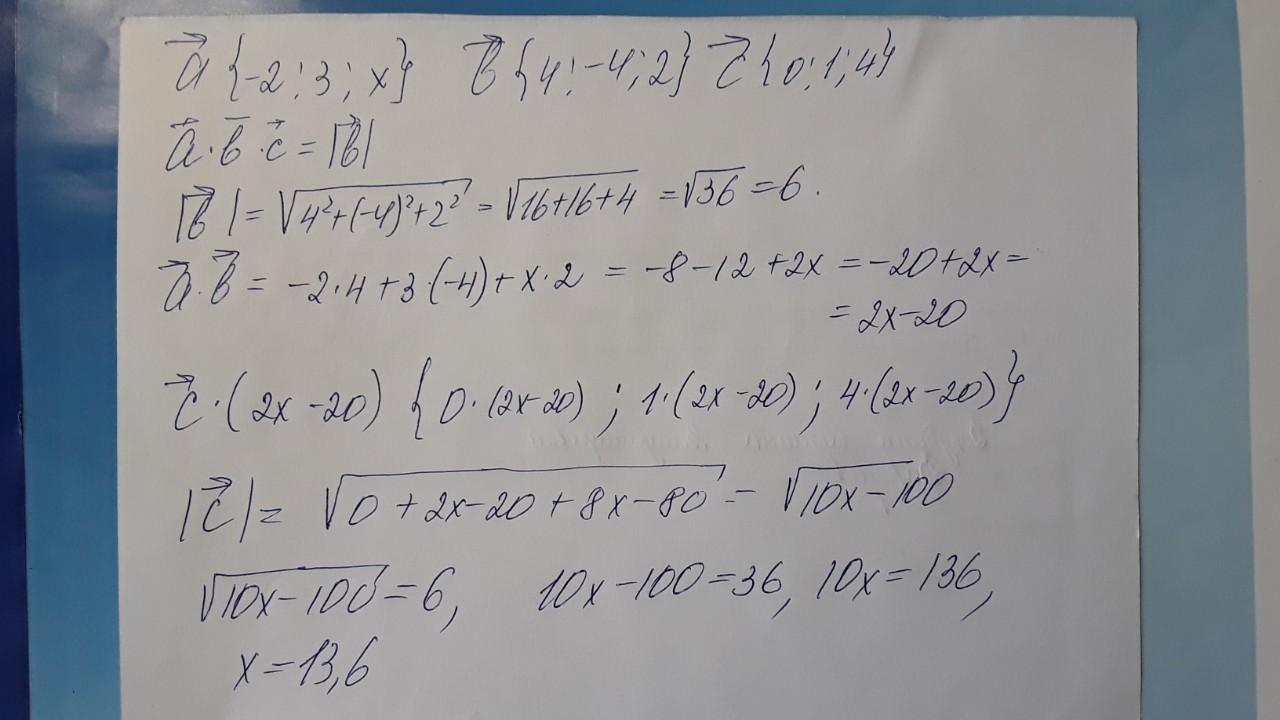 a⃗ {-2; 3; x} b⃗ {4; -4; 2} c⃗ {0; 1; 4}
a⃗ · b̅ · c⃗ = |b⃗|
|b⃗| = √(4²+(-4)²+2²) = √(16+16+4) = √36 = 6.
a⃗ · b⃗ = -2·4+3·(-4)+x·2 = -8-12+2x = -20+2x =
= 2x-20
c⃗ · (2x-20) {0·(2x-20); 1·(2x-20); 4·(2x-20)}
|c⃗| = √(0+2x-20+8x-80) = √(10x-100)
√(10x-100) = 6, 10x-100=36, 10x=136,
x=13,6